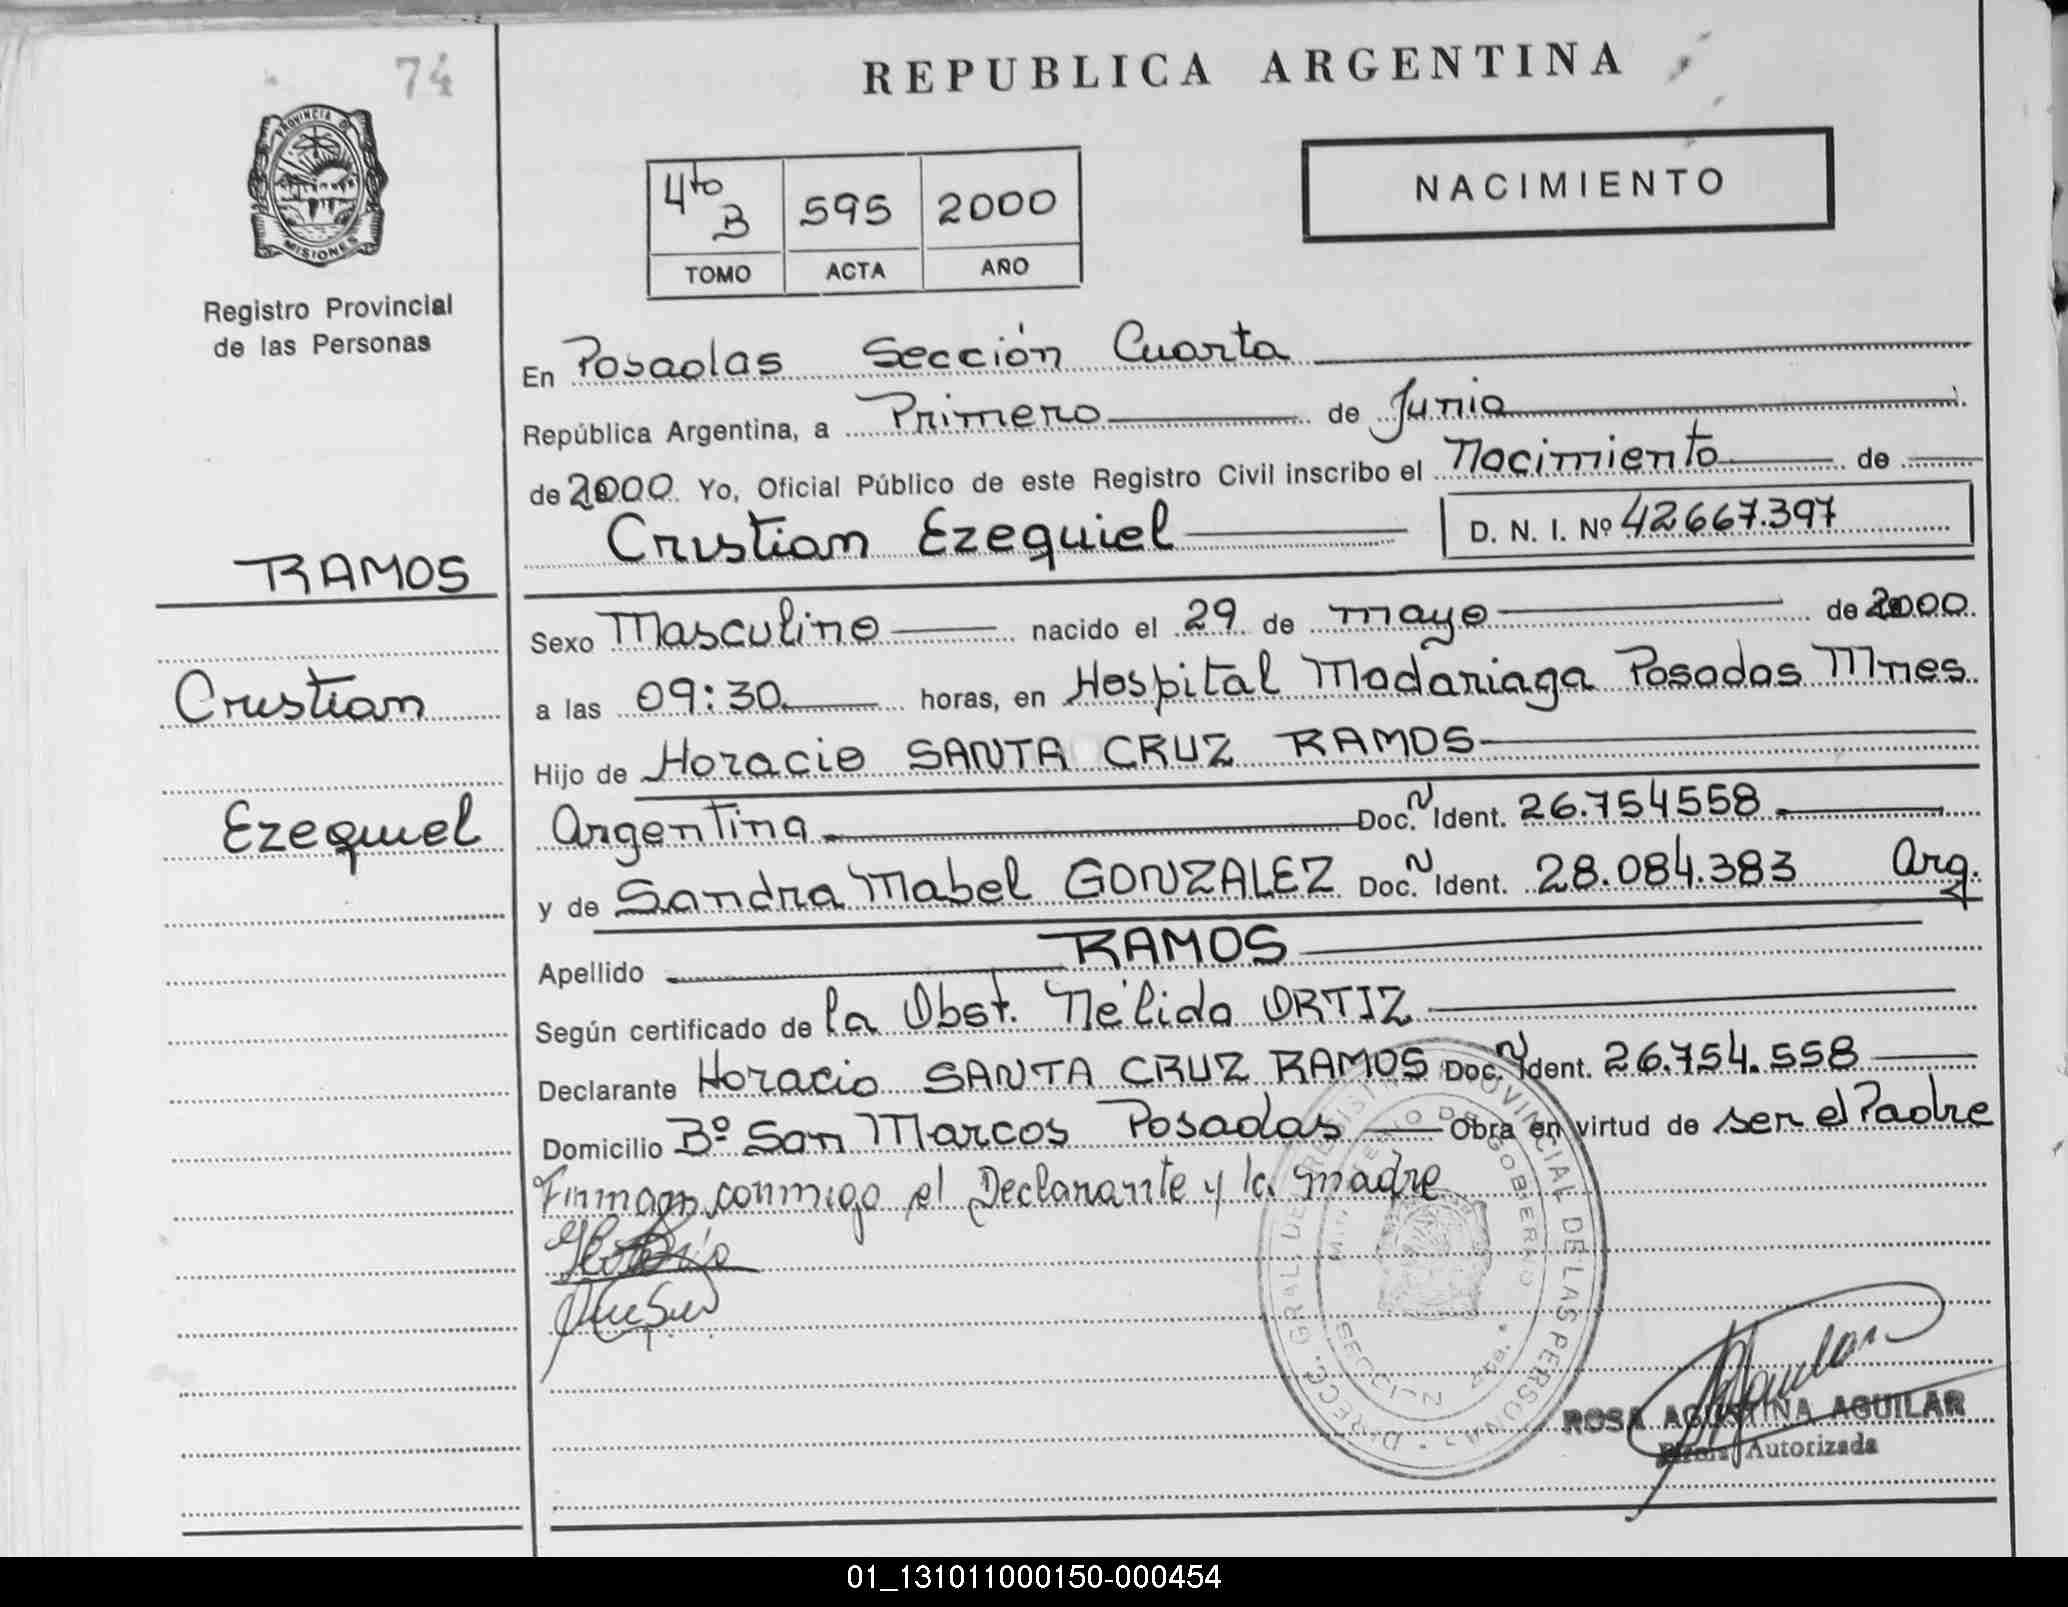 74
REPUBLICA ARGENTINA
PROVINCIA D
MISIONES
Registro Provincial
de las Personas
NACIMIENTO
4to B 595 2000
TOMO ACTA AÑO
En Posadas Sección Cuarta
República Argentina, a Primero de Junio
de 2000 Yo, Oficial Público de este Registro Civil inscribo el Nacimiento de
Cristian Ezequiel D. N. I. Nº 42667.397
RAMOS
Cristian
Ezequiel
Sexo Masculino nacido el 29 de mayo de 2000
a las 09:30 horas, en Hospital Madariaga Posadas Mnes.
Hijo de Horacio SANTA CRUZ RAMOS
Argentina Doc. N Ident. 26.754558
y de Sandra Mabel GONZALEZ Doc. N Ident. 28.084.383 Arg.
Apellido RAMOS
Según certificado de la Obst. Nélida ORTIZ
Declarante Horacio SANTA CRUZ RAMOS Doc. N Ident. 26.754.558
Domicilio Bº San Marcos Posadas Obra en virtud de ser el Padre
Firman conmigo el Declarante y la madre
DIRECC. GRAL. DE REGISTRO PROVINCIAL DE LAS PERSONAS
MINISTERIO DE GOBIERNO
SECCION 4ta.
ROSA AGUSTINA AGUILAR
Firma Autorizada
01_131011000150-000454